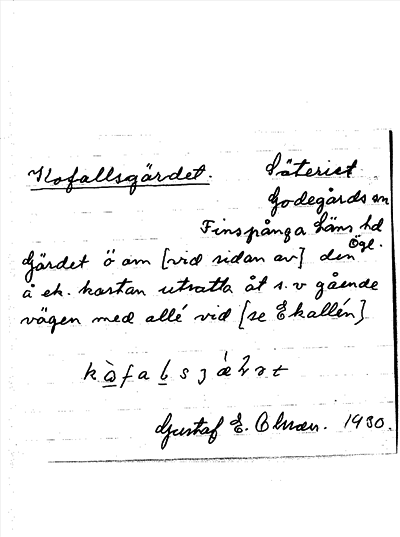 Kofallsgärdet. Säteriet
Godegårds sn
Finspånga läns hd
Ögl.
Gärdet ö om [vid sidan av] den
å ek. kartan utsatta åt s.v gående
vägen med allé vid [se Ekallén]
Gustaf E. Olsson. 1930.